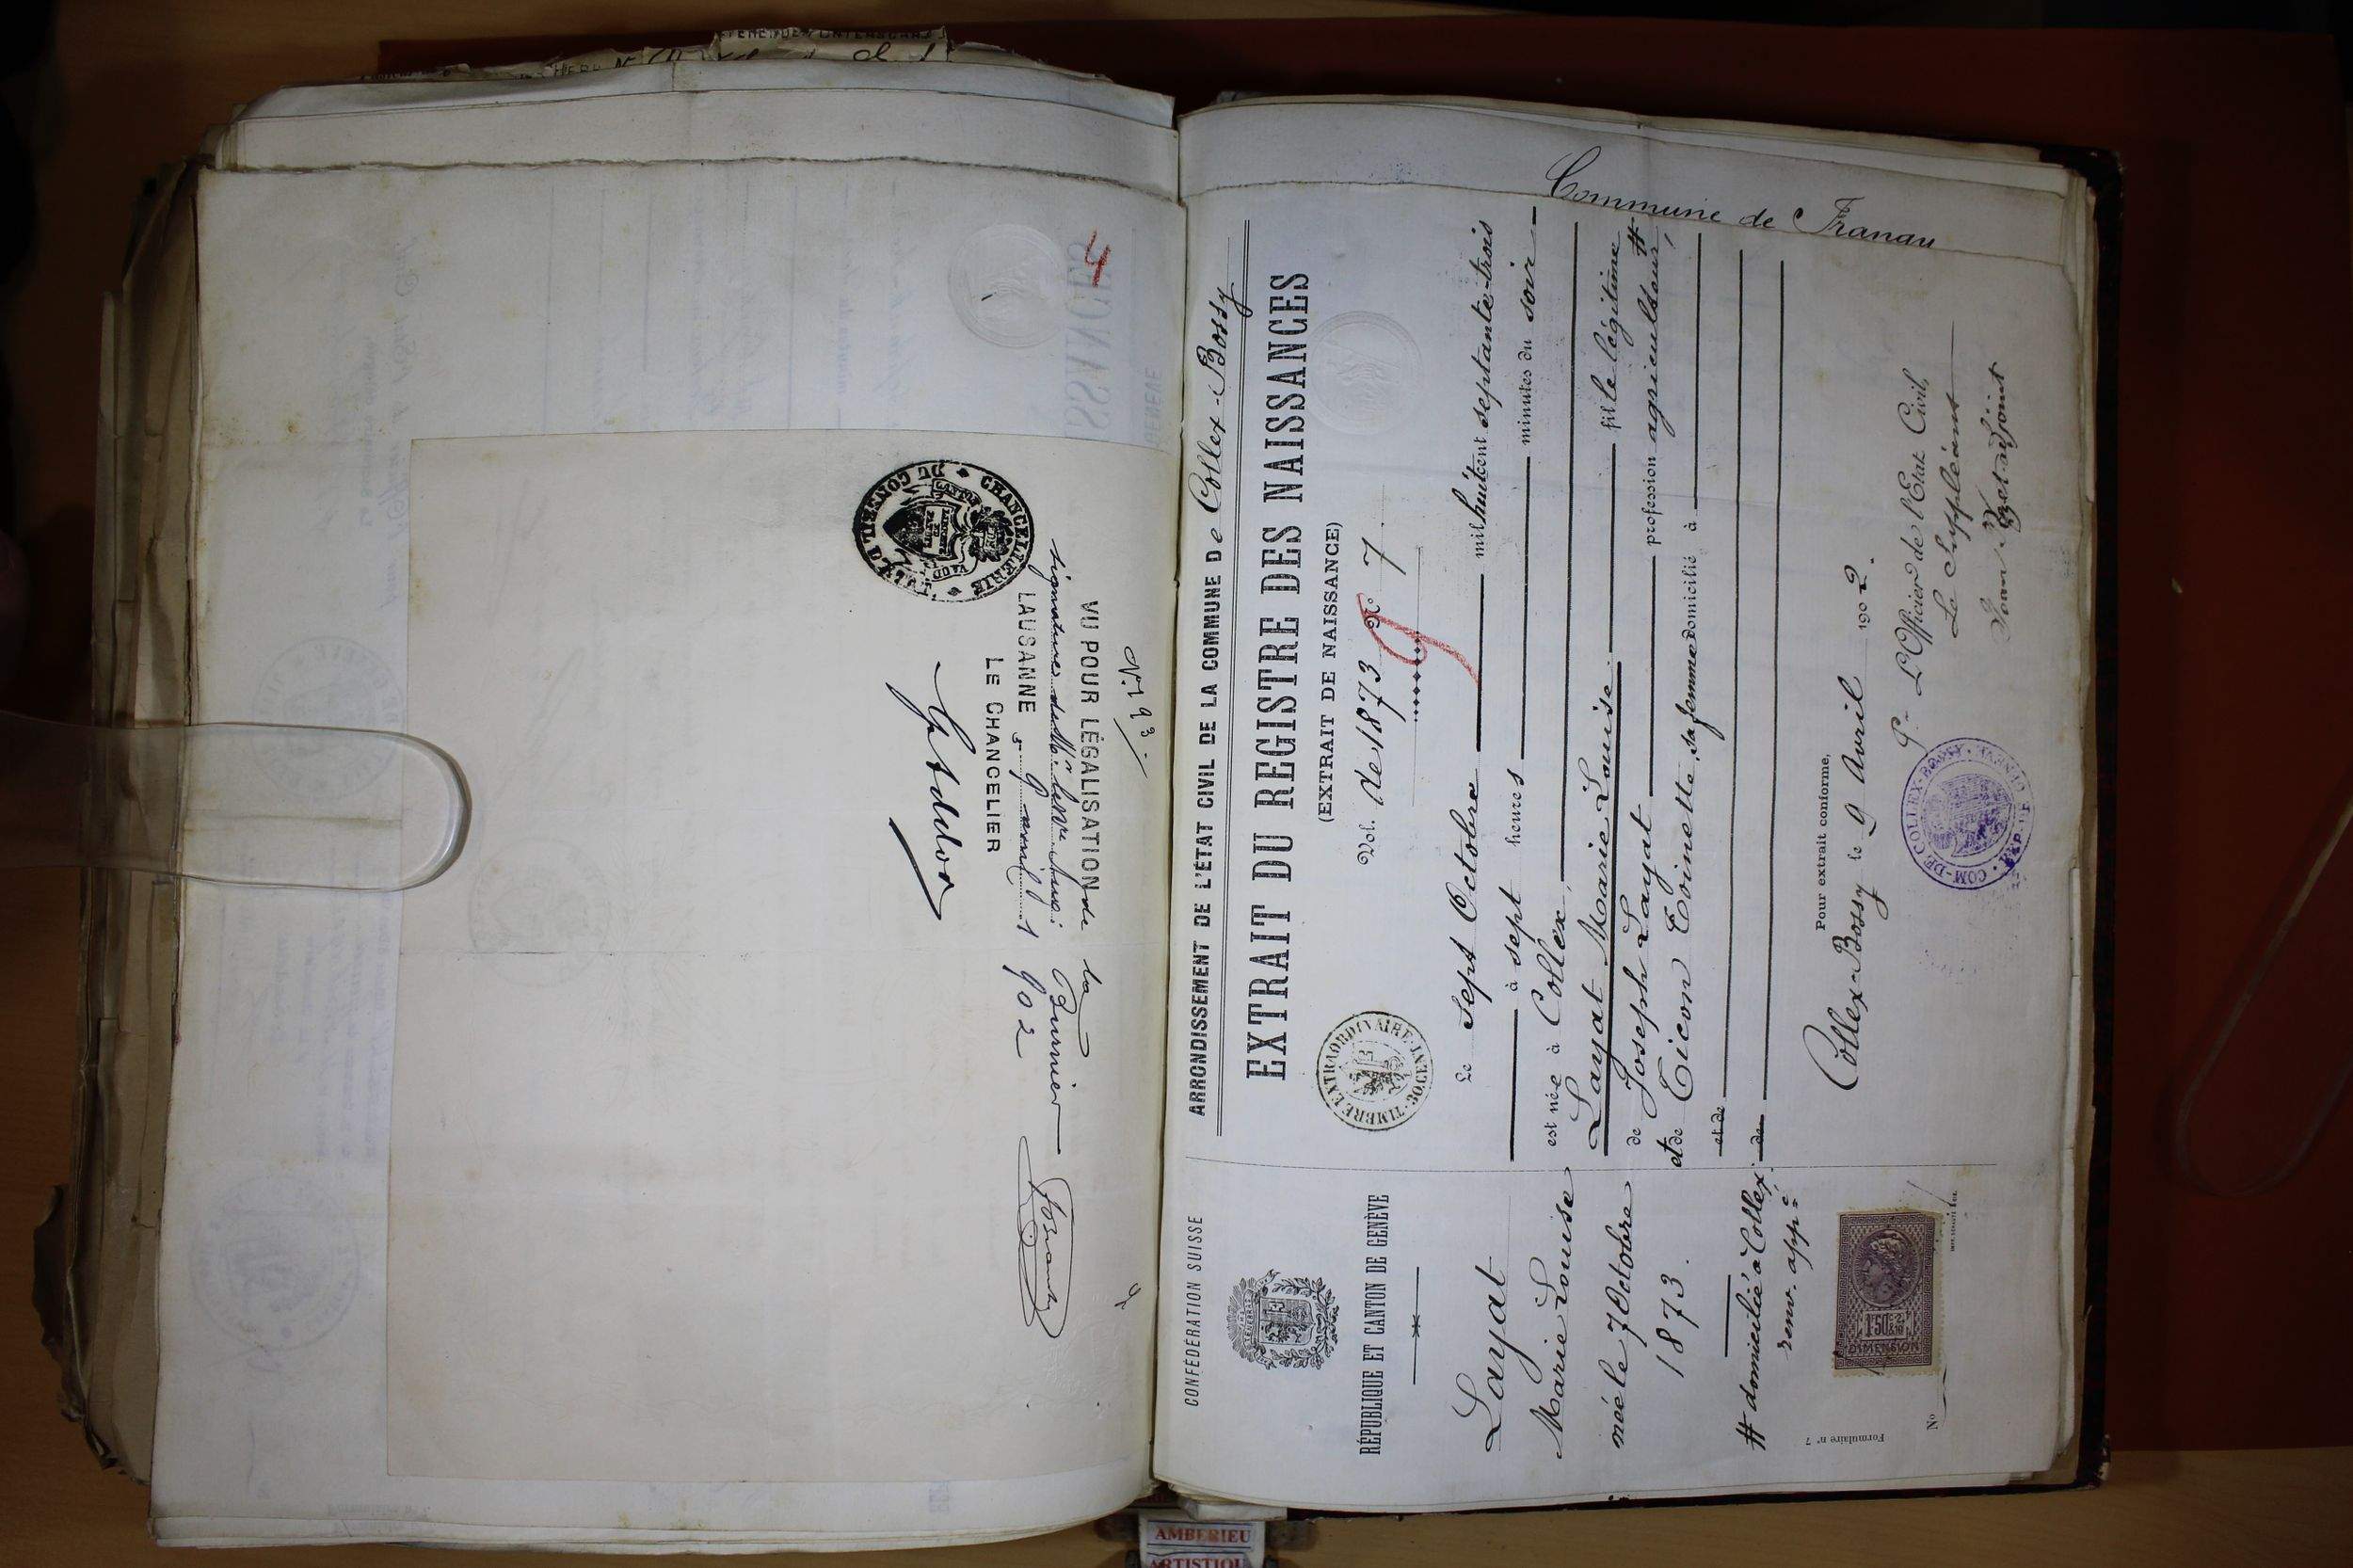 N: 193.
VU POUR LÉGALISATION de la
signature de Mr
LAUSANNE, 9 avril 1902
LE CHANCELIER
CHANCELLERIE DU CONSEIL D'ÉTAT
CANTON DE VAUD
4
Commune de
CONFÉDÉRATION SUISSE
RÉPUBLIQUE ET CANTON DE GENÈVE
Layat
Marie Louise
née le 7 Octobre
1873.
# domiciliée à Collex.
renv. appé
1 50
DIMENSION
No
Formulaire no 7
ARRONDISSEMENT DE L'ÉTAT CIVIL DE LA COMMUNE De Collex-Bossy
EXTRAIT DU REGISTRE DES NAISSANCES
(EXTRAIT DE NAISSANCE)
TIMBRE EXTRAORDINAIRE
Vol. de 1873 No 7.
9
Le sept Octobre mil huit cent septante-trois
à sept heures minutes du soir
est née à Collex,
Layat Marie Louise. fille légitime
de Joseph Layat profession agriculteur, #
et de Ticon Toinette, sa femme domicilié à
et de
de
Pour extrait conforme,
Collex-Bossy le 9 Avril 1902.
Pr L'Officier de l'Etat Civil,
Le Suppléant
adjoint
COM-DE-COLLEX-BOSSY
AMBERIEU